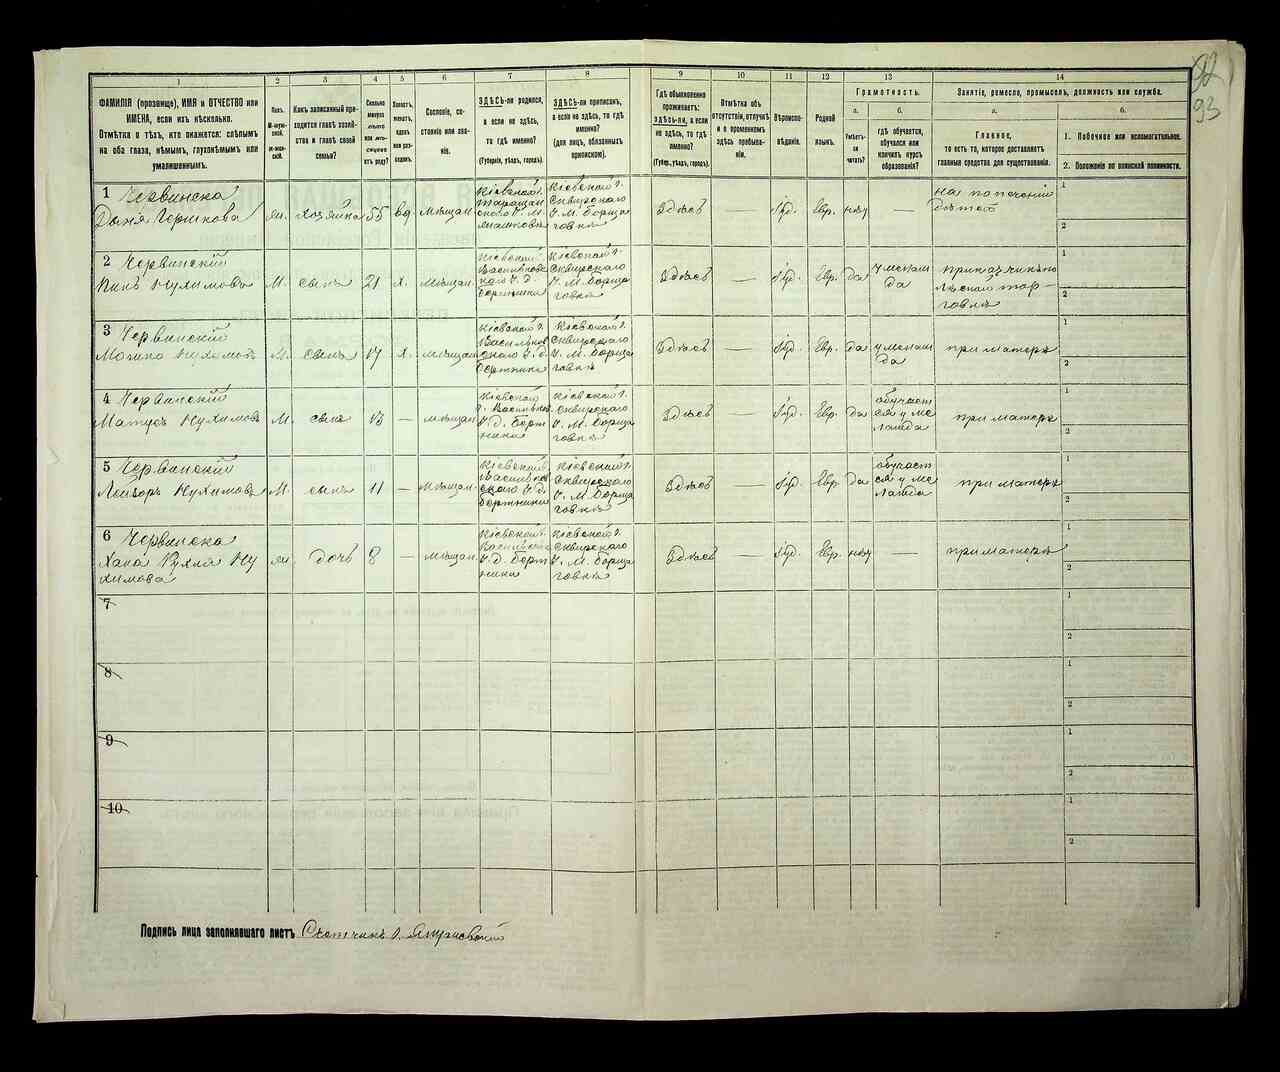 92
93
1
2
3
4
5
6
7
8
9
10
11
12
13
14
ФАМИЛІЯ (прозвище), ИМЯ и ОТЧЕСТВО или
ИМЕНА, если ихъ нѣсколько.
Отмѣтка о тѣхъ, кто окажется: слѣпымъ
на оба глаза, нѣмымъ, глухонѣмымъ или
умалишеннымъ.
Полъ.
М-муж-
ской.
Ж-жен-
скій.
Какъ записанный при-
ходится главѣ хозяй-
ства и главѣ своей
семьи?
Сколько
минуло
лѣтъ
или мѣ-
сяцевъ
отъ роду?
Холостъ,
женатъ,
вдовъ
или раз-
веденъ.
Сословіе, со-
стояніе или зва-
ніе.
ЗДѢСЬ-ли родился,
а если не здѣсь,
то гдѣ именно?
(Губернія, уѣздъ, городъ).
ЗДѢСЬ-ли приписанъ,
а если не здѣсь, то гдѣ
именно?
(для лицъ, обязанныхъ
припиской).
Гдѣ обыкновенно
проживаетъ:
здѣсь-ли, а если
не здѣсь, то гдѣ
именно?
(Губерн., уѣздъ, городъ).
Отмѣтка объ
отсутствіи, отлучкѣ
и о временномъ
здѣсь пребыва-
ніи.
Вѣроиспо-
вѣданіе.
Родной
языкъ.
Грамотность.
а.
Умѣетъ-
ли
читать?
б.
гдѣ обучается,
обучался или
кончилъ курсъ
образованія?
Занятіе, ремесло, промыселъ, должность или служба.
а.
Главное,
то есть то, которое доставляетъ
главныя средства для существованія.
б.
1. Побочное или вспомогательное.
2. Положеніе по воинской повинности.
1 Червинска
Дыня Гершкова
ж.
хозяйка
55
вд
мѣщан.
Кіевской г.
Таращан
скаго У. М.
Кіевской г.
Сквирскаго
У. М. Борща
говкѣ
Здѣсь
—
Іуд.
Евр.
нѣт
—
на попеченіи
дѣтей
1
2
2 Червинскій
Пинь Нухимовъ
М.
сынъ
21
х.
Мѣщан.
Кіевской
Васильков
скаго У. д.
Бортники
Кіевской г.
Сквирскаго
У. М. Борща
говкѣ
Здѣсь
—
Іуд.
Евр.
да
у мелам
да
лѣсной тор-
говлѣ
1
2
3 Червинскій
Мошко Нухимовъ
М.
сынъ
17
х.
мѣщан.
Кіевской г.
Васильков
скаго У. д.
Бортники
Кіевской г.
Сквирскаго
У. М. Борща
говкѣ
Здѣсь
—
Іуд.
Евр.
да
у мелам
да
при матери
1
2
4 Червинскій
Матусъ Нухимовъ
М.
сынъ
13
—
мѣщан.
Кіевской
г. Васильк.
У. д. Борт
ники
Кіевской г.
Сквирскаго
У. М. Борща
говкѣ
Здѣсь
—
Іуд.
Евр.
да
обучает
ся у ме
ламда
при матери
1
2
5 Червинскій
Лейзоръ Нухимовъ
М.
сынъ
11
—
Мѣщан.
Кіевской
Васильков
скаго У. д.
Бортники
Кіевской г.
Сквирскаго
У. М. Борща
говкѣ
Здѣсь
—
Іуд.
Евр.
да
обучает
ся у ме
ламда
при матери
1
2
6 Червинска
Хана Рухля Ну
химова
ж.
дочь
8
—
мѣщан.
Кіевской г.
Васильков
У. д. Борт
ники
Кіевской г.
Сквирскаго
У. М. Борща
говкѣ
Здѣсь
—
Іуд.
Евр.
нѣт
—
при матери
1
2
7
1
2
8
1
2
9
1
2
10
1
2
Подпись лица заполнявшаго листъ Счетчикъ